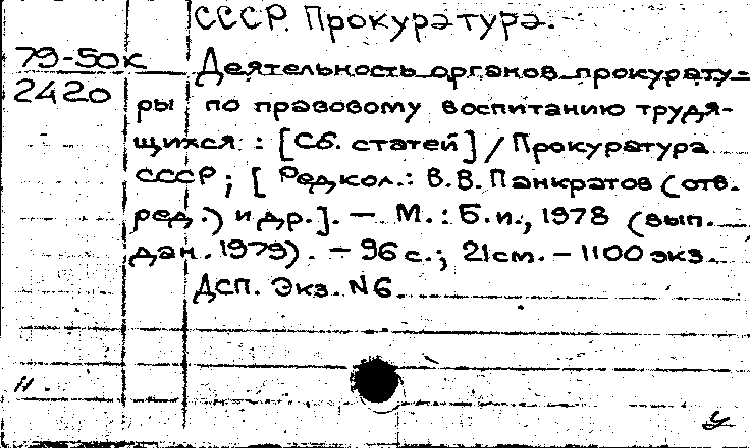 СССР. Прокуратура.
79-50к
2420
Деятельность органов прокурату-
ры по правовому воспитанию трудя-
щихся : [Сб. статей] / Прокуратура
СССР ; [Редкол.: В.В. Панкратов (отв.
ред.) и др.]. — М. : Б.и., 1978 (вып.
дан. 1979). — 96 с. ; 21 см. — 1100 экз.
ДСП. Экз. N6.
н.
у